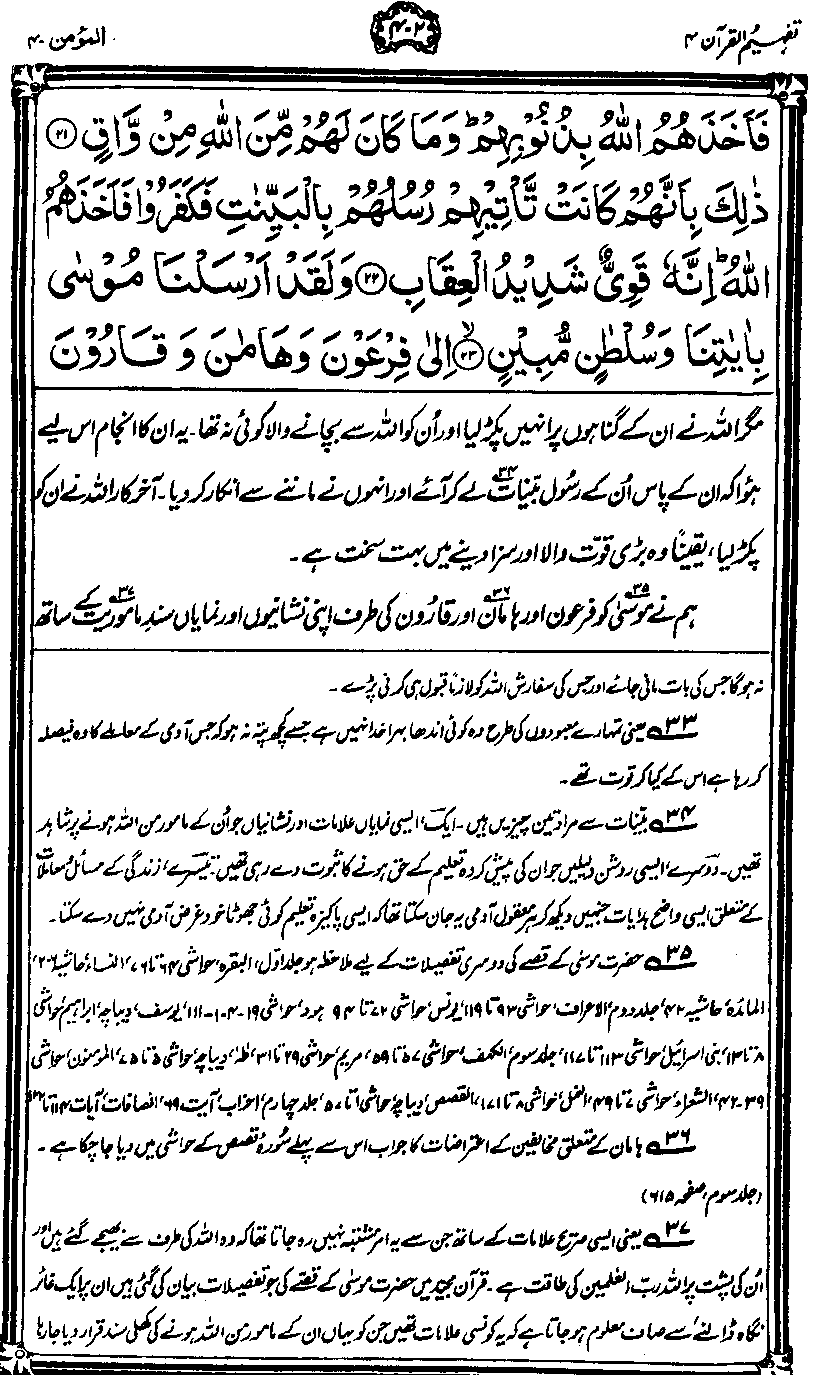 تفہیم القرآن ۴
۴۰۲
المؤمن ۴۰
فَاَخَذَهُمُ اللّٰهُ بِذُنُوْبِهِمْ ؕ وَمَا كَانَ لَهُمْ مِّنَ اللّٰهِ مِنْ وَّاقٍ ﴿۲۱﴾
ذٰلِكَ بِاَنَّهُمْ كَانَتْ تَّاْتِيْهِمْ رُسُلُهُمْ بِالْبَيِّنٰتِ فَكَفَرُوْا فَاَخَذَهُمُ
اللّٰهُ ؕ اِنَّهٗ قَوِيٌّ شَدِيْدُ الْعِقَابِ ﴿۲۲﴾ وَلَقَدْ اَرْسَلْنَا مُوْسٰى
بِاٰيٰتِنَا وَسُلْطٰنٍ مُّبِيْنٍ ﴿۲۳﴾ۙ اِلٰى فِرْعَوْنَ وَهَامٰنَ وَ قَارُوْنَ
مگر اللہ نے ان کے گناہوں پر انہیں پکڑ لیا اور اُن کو اللہ سے بچانے والا کوئی نہ تھا۔ یہ ان کا انجام اس لیے
ہوا کہ ان کے پاس اُن کے رسول بیّنات۳۴ لے کر آئے اور انہوں نے ماننے سے انکار کر دیا۔ آخر کار اللہ نے ان کو
پکڑ لیا، یقیناً وہ بڑی قوّت والا اور سزا دینے میں بہت سخت ہے۔
ہم نے موسیٰ۳۵ کو فرعون اور ہامان۳۶ اور قارون کی طرف اپنی نشانیوں اور نمایاں سندِ ماموریت۳۷ کے ساتھ
نہ ہوگا جس کی بات مانی جائے اور جس کی سفارش اللہ کو لازماً قبول ہی کرنی پڑے۔
۳۳ یعنی تمہارے معبودوں کی طرح وہ کوئی اندھا بہرا خدا نہیں ہے جسے کچھ پتہ نہ ہو کہ جس آدمی کے معاملے کا وہ فیصلہ
کر رہا ہے اس کے کیا کرتوت تھے۔
۳۴ بیّنات سے مراد تین چیزیں ہیں۔ ایک، ایسی نمایاں علامات اور نشانیاں جو اُن کے مامور من اللہ ہونے پر شاہد
تھیں۔ دوسرے، ایسی روشن دلیلیں جو ان کی پیش کردہ تعلیم کے حق ہونے کا ثبوت دے رہی تھیں۔ تیسرے، زندگی کے مسائل و معاملات
کے متعلق ایسی واضح ہدایات جنہیں دیکھ کر ہر معقول آدمی یہ جان سکتا تھا کہ ایسی پاکیزہ تعلیم کوئی جھوٹا خود غرض آدمی نہیں دے سکتا۔
۳۵ حضرت موسیٰ کے قصے کی دوسری تفصیلات کے لیے ملاحظہ ہو جلد اوّل، البقرہ، حواشی ۶۴ تا ۷۶، النساء، حاشیہ ۲۰۶،
المائدہ، حاشیہ ۴۲، جلد دوم، الاعراف، حواشی ۹۳ تا ۱۱۹، یونس، حواشی ۷۲ تا ۹۴ ہود، حواشی ۱۹-۱۰۴-۱۱۱، یوسف، دیباچہ، ابراہیم، حواشی
۸ تا ۱۳، بنی اسرائیل، حواشی ۱۱۳ تا ۱۱۷، جلد سوم، الکہف، حواشی ۵۷ تا ۵۹، مریم، حواشی ۲۹ تا ۳۱، طٰہٰ، دیباچہ، حواشی ۵ تا ۷۵، المومنون، حواشی
۳۹-۴۲، الشعراء، حواشی ۷ تا ۴۹، النمل، حواشی ۸ تا ۱۷، القصص، دیباچہ، حواشی ۱ تا ۵۷، جلد چہارم، احزاب، آیت ۶۹، الصافات، آیات ۱۱۴ تا
۳۶ ہامان کے متعلق مخالفین کے اعتراضات کا جواب اس سے پہلے سُورۂ قصص کے حواشی میں دیا جا چکا ہے۔
(جلد سوم، صفحہ ۶۱۵)
۳۷ یعنی ایسی صریح علامات کے ساتھ جن سے یہ امر مشتبہ نہیں رہ جاتا تھا کہ وہ اللہ کی طرف سے بھیجے گئے ہیں اور
اُن کی پشت پر اللہ رب العٰلمین کی طاقت ہے۔ قرآن مجید میں حضرت موسیٰ کے قصّے کی جو تفصیلات بیان کی گئی ہیں ان پر ایک غائر
نگاہ ڈالنے سے صاف معلوم ہو جاتا ہے کہ یہ کونسی علامات تھیں جن کو یہاں ان کے مامور من اللہ ہونے کی کھلی سند قرار دیا جا رہا